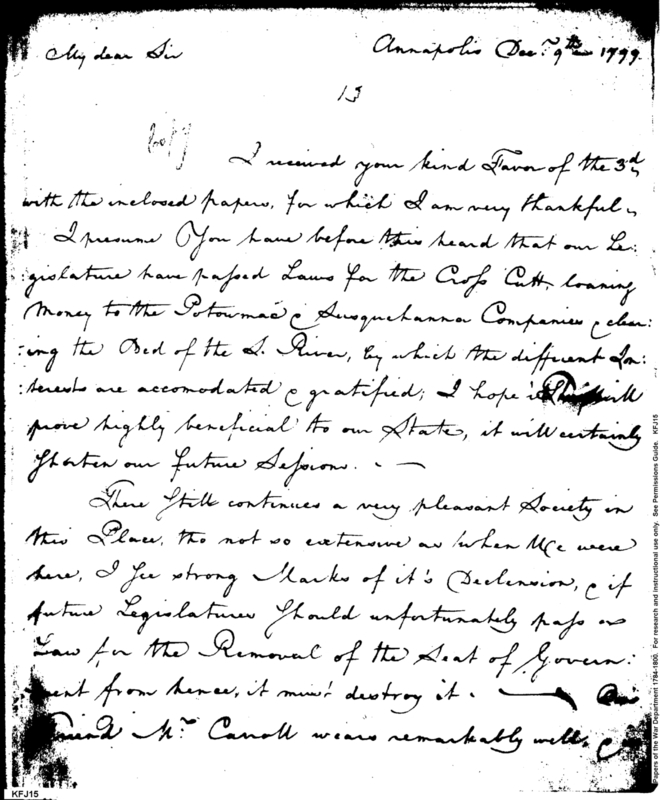 My dear Sir
Annapolis Decr. 9th 1799.
13
Copy
I received your kind Favor of the 3d,
with the inclosed papers, for which I am very thankful,
I presume You have before this heard that our Le:
:gislature have passed Laws for the Cross Cutt, loaning
Money to the Potowmac & Susquehanna Companies & clear:
:ing the Bed of the S. River, by which the different In:
:terests are accomodated & gratified; I hope it will
prove highly beneficial to our State, it will certainly
shorten our future Sessions. . —
There still continues a very pleasant Society in
this Place, tho not so extensive as when We were
here, I see strong Marks of it's Declension, & if
future Legislatures should unfortunately pass a
Law for the Removal of the Seat of Govern:
:ment from hence, it must destroy it. — Our
Friend Mr. Carroll wears remarkably well, &
KFJ15
Papers of the War Department 1784-1800. For research and instructional use only. See Permissions Guide. KFJ15